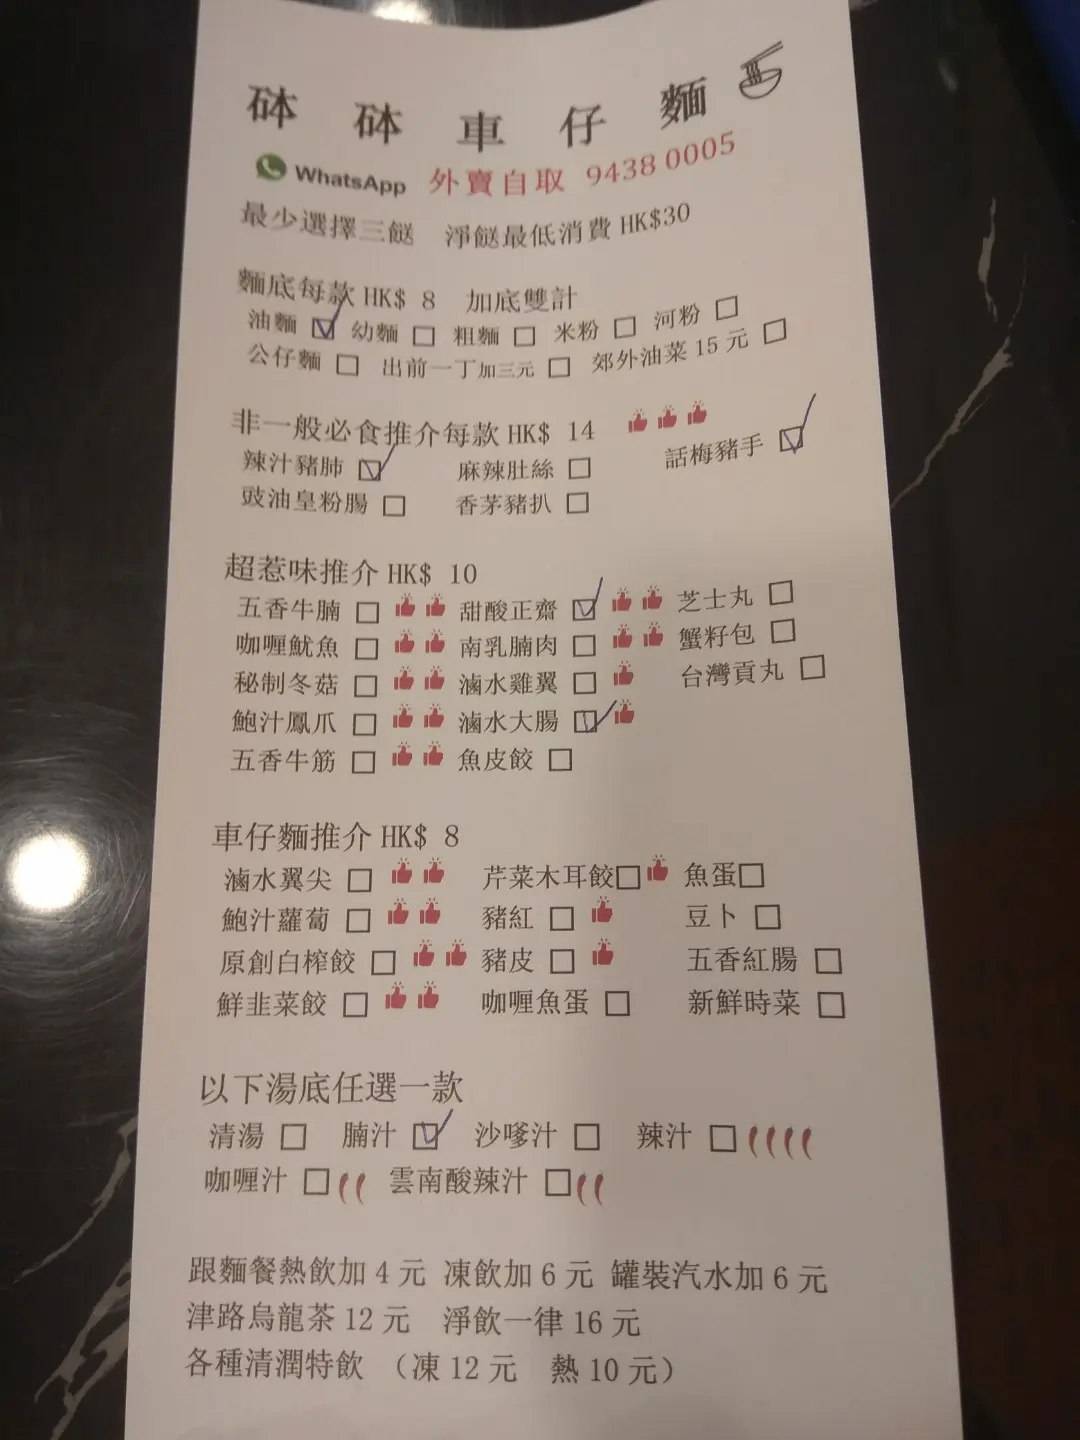 砵砵車仔麵
WhatsApp 外賣自取 9438 0005
最少選擇三餸 淨餸最低消費 HK$30
麵底每款 HK$ 8 加底雙計
油麵 ☑ 幼麵 □ 粗麵 □ 米粉 □ 河粉 □
公仔麵 □ 出前一丁加三元 □ 郊外油菜 15 元 □
非一般必食推介每款 HK$ 14
辣汁豬肺 ☑ 麻辣肚絲 □ 話梅豬手 ☑
豉油皇粉腸 □ 香茅豬扒 □
超惹味推介 HK$ 10
五香牛腩 □ 甜酸正齋 ☑ 芝士丸 □
咖喱魷魚 □ 南乳腩肉 □ 蟹籽包 □
秘制冬菇 □ 滷水雞翼 □ 台灣貢丸 □
鮑汁鳳爪 □ 滷水大腸 ☑
五香牛筋 □ 魚皮餃 □
車仔麵推介 HK$ 8
滷水翼尖 □ 芹菜木耳餃 □ 魚蛋 □
鮑汁蘿蔔 □ 豬紅 □ 豆卜 □
原創白榨餃 □ 豬皮 □ 五香紅腸 □
鮮韭菜餃 □ 咖喱魚蛋 □ 新鮮時菜 □
以下湯底任選一款
清湯 □ 腩汁 ☑ 沙嗲汁 □ 辣汁 □
咖喱汁 □ 雲南酸辣汁 □
跟麵餐熱飲加 4 元 凍飲加 6 元 罐裝汽水加 6 元
津路烏龍茶 12 元 淨飲一律 16 元
各種清潤特飲 （凍 12 元 熱 10 元）